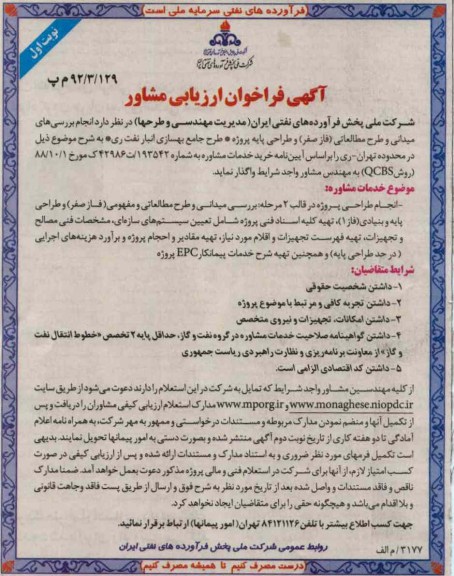 فرآورده های نفتی سرمایه ملی است
نوبت اول
شرکت ملی پخش فرآورده‌های نفتی ایران
۹۲/۳/۱۲۹ م پ
آگهی فراخوان ارزیابی مشاور
شرکت ملی پخش فرآورده‌های نفتی ایران( مدیریت مهندسی و طرحها) در نظر دارد انجام بررسی‌های
میدانی و طرح مطالعاتی (فاز صفر) و طراحی پایه پروژه * طرح جامع بهسازی انبار نفت ری* به شرح موضوع ذیل
در محدوده تهران-ری را براساس آیین‌نامه خرید خدمات مشاوره به شماره ۱۹۳۵۴۲/ت۴۲۹۸۶ک مورخ ۸۸/۱۰/۱
(روش QCBS) به مهندس مشاور واجد شرایط واگذار نماید.
موضوع خدمات مشاوره:
-انجام طراحی پروژه در قالب ۲ مرحله: بررسی میدانی و طرح مطالعاتی و مفهومی (فاز صفر) و طراحی
پایه و بنیادی (فاز۱)، تهیه کلیه اسناد فنی پروژه شامل تعیین سیستم‌های سازه‌ای، مشخصات فنی مصالح
و تجهیزات، تهیه فهرست تجهیزات و اقلام مورد نیاز، تهیه مقادیر و احجام پروژه و برآورد هزینه‌های اجرایی
( در حد طراحی پایه) و همچنین تهیه شرح خدمات پیمانکار EPC پروژه
شرایط متقاضیان:
۱- داشتن شخصیت حقوقی
۲- داشتن تجربه کافی و مرتبط با موضوع پروژه
۳- داشتن امکانات، تجهیزات و نیروی متخصص
۴- داشتن گواهینامه صلاحیت خدمات مشاوره در گروه نفت و گاز، حداقل پایه ۲ تخصص «خطوط انتقال نفت
و گاز» از معاونت برنامه‌ریزی و نظارت راهبردی ریاست جمهوری
۵- داشتن کد اقتصادی الزامی است.
از کلیه مهندسین مشاور واجد شرایط که تمایل به شرکت در این استعلام را دارند دعوت می‌شود از طریق سایت
www.monaghese.niopdc.ir و www.mporg.ir مدارک استعلام ارزیابی کیفی مشاوران را دریافت و پس
از تکمیل آنها و منضم نمودن مدارک مربوطه و مستندات درخواستی و ممهور به مهر شرکت، به همراه نامه اعلام
آمادگی تا دو هفته کاری از تاریخ نوبت دوم آگهی منتشر شده و بصورت دستی به امور پیمانها تحویل نمایند. بدیهی
است تکمیل فرمهای مورد نظر ضروری و به استناد مدارک و مستندات ارائه شده و پس از ارزیابی کیفی در صورت
کسب امتیاز لازم، از آنها برای شرکت در استعلام فنی و مالی پروژه مذکور دعوت بعمل خواهد آمد. ضمنا مدارک
ناقص و فاقد مستندات و واصل شده بعد از تاریخ مورد نظر به شرح فوق و ارسال از طریق پست فاقد وجاهت قانونی
و بلااقدام می‌باشد و هیچگونه حقی را برای متقاضیان ایجاد نخواهد کرد.
جهت کسب اطلاع بیشتر با تلفن ۸۴۱۲۱۱۲۶ تهران( امور پیمانها) ارتباط برقرار نمائید.
روابط عمومی شرکت ملی پخش فرآورده های نفتی ایران
۳۱۷۷/ م الف
درست مصرف کنیم تا همیشه مصرف کنیم